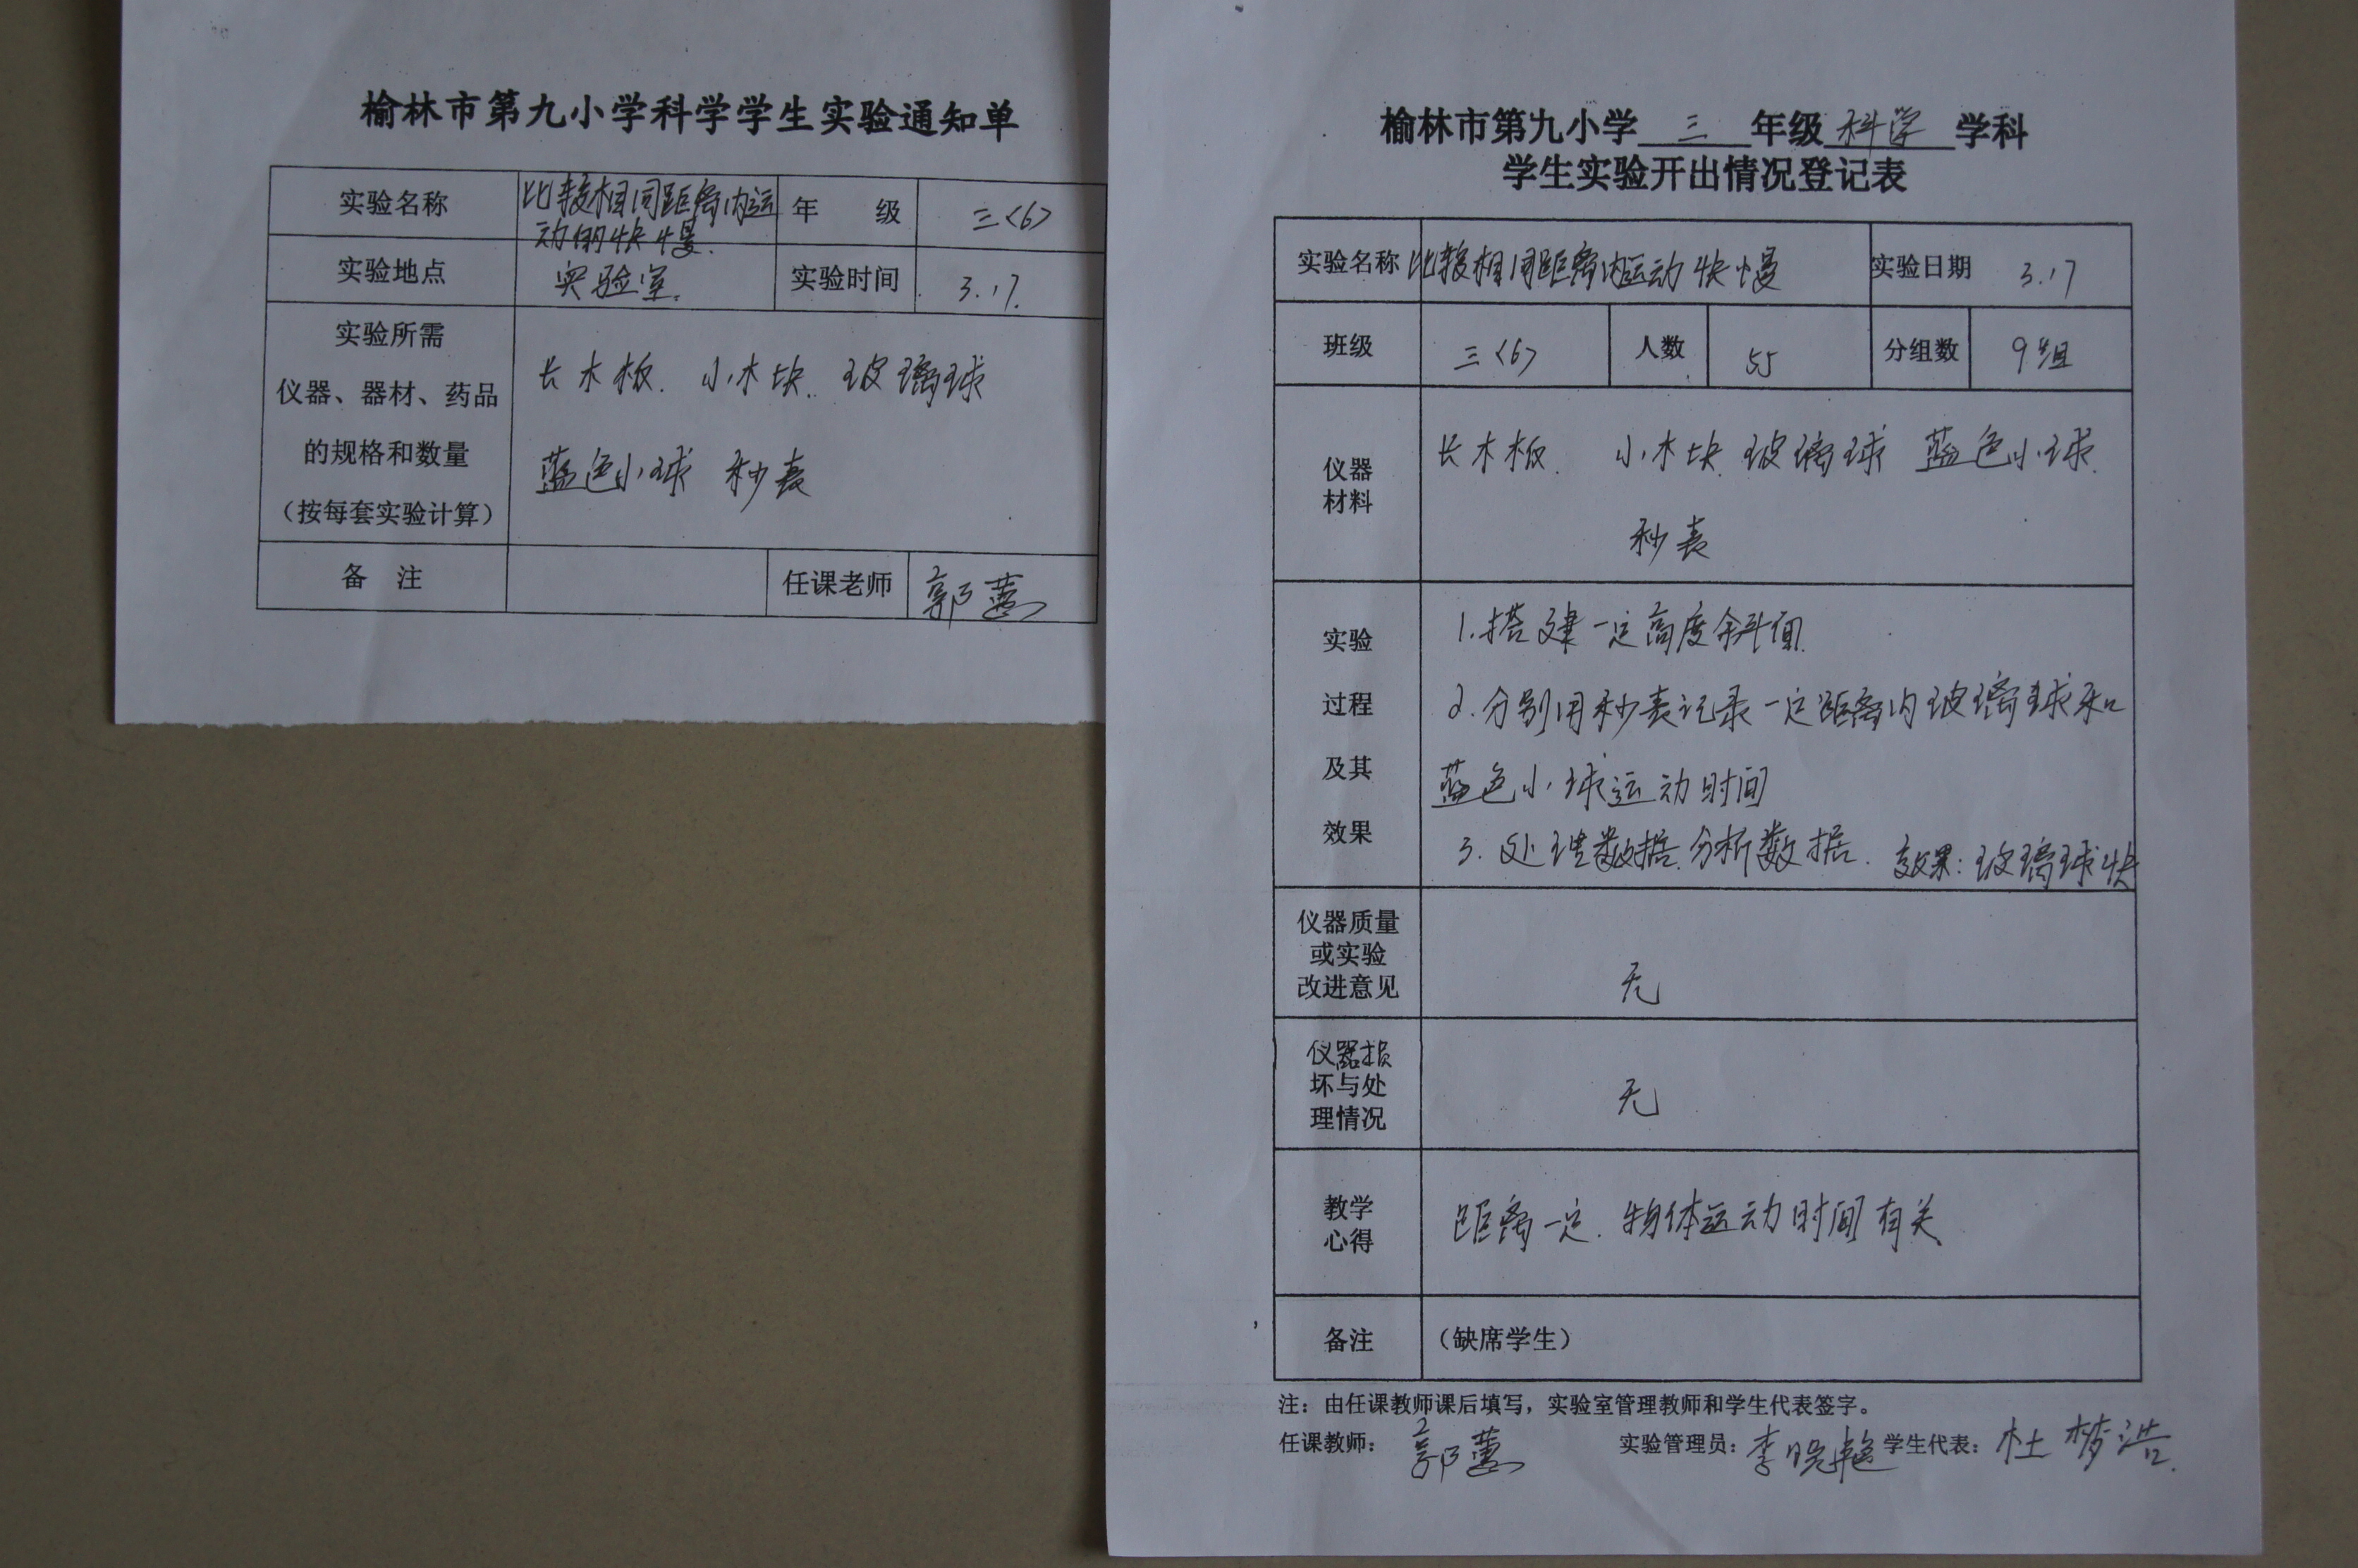 榆林市第九小学科学学生实验通知单
实验名称 比较相同距离内运动的快慢. 年 级 三<6>
实验地点 实验室. 实验时间 3.17.
实验所需
仪器、器材、药品
的规格和数量
（按每套实验计算）
长木板. 小木块. 玻璃球
蓝色小球 秒表
备 注 任课老师 郭蕙
榆林市第九小学 三 年级 科学 学科
学生实验开出情况登记表
实验名称 比较相同距离内运动快慢 实验日期 3.17
班级 三<6> 人数 55 分组数 9组
仪器
材料
长木板. 小木块 玻璃球 蓝色小球.
秒表
实验
过程
及其
效果
1.搭建一定高度斜面.
2.分别用秒表记录一定距离内玻璃球和
蓝色小球运动时间
3.处理数据.分析数据. 效果:玻璃球快
仪器质量
或实验
改进意见
无
仪器损
坏与处
理情况
无
教学
心得
距离一定.物体运动时间有关
备注 （缺席学生）
注：由任课教师课后填写，实验室管理教师和学生代表签字。
任课教师： 郭蕙 实验管理员：李晓艳 学生代表：杜梦浩.